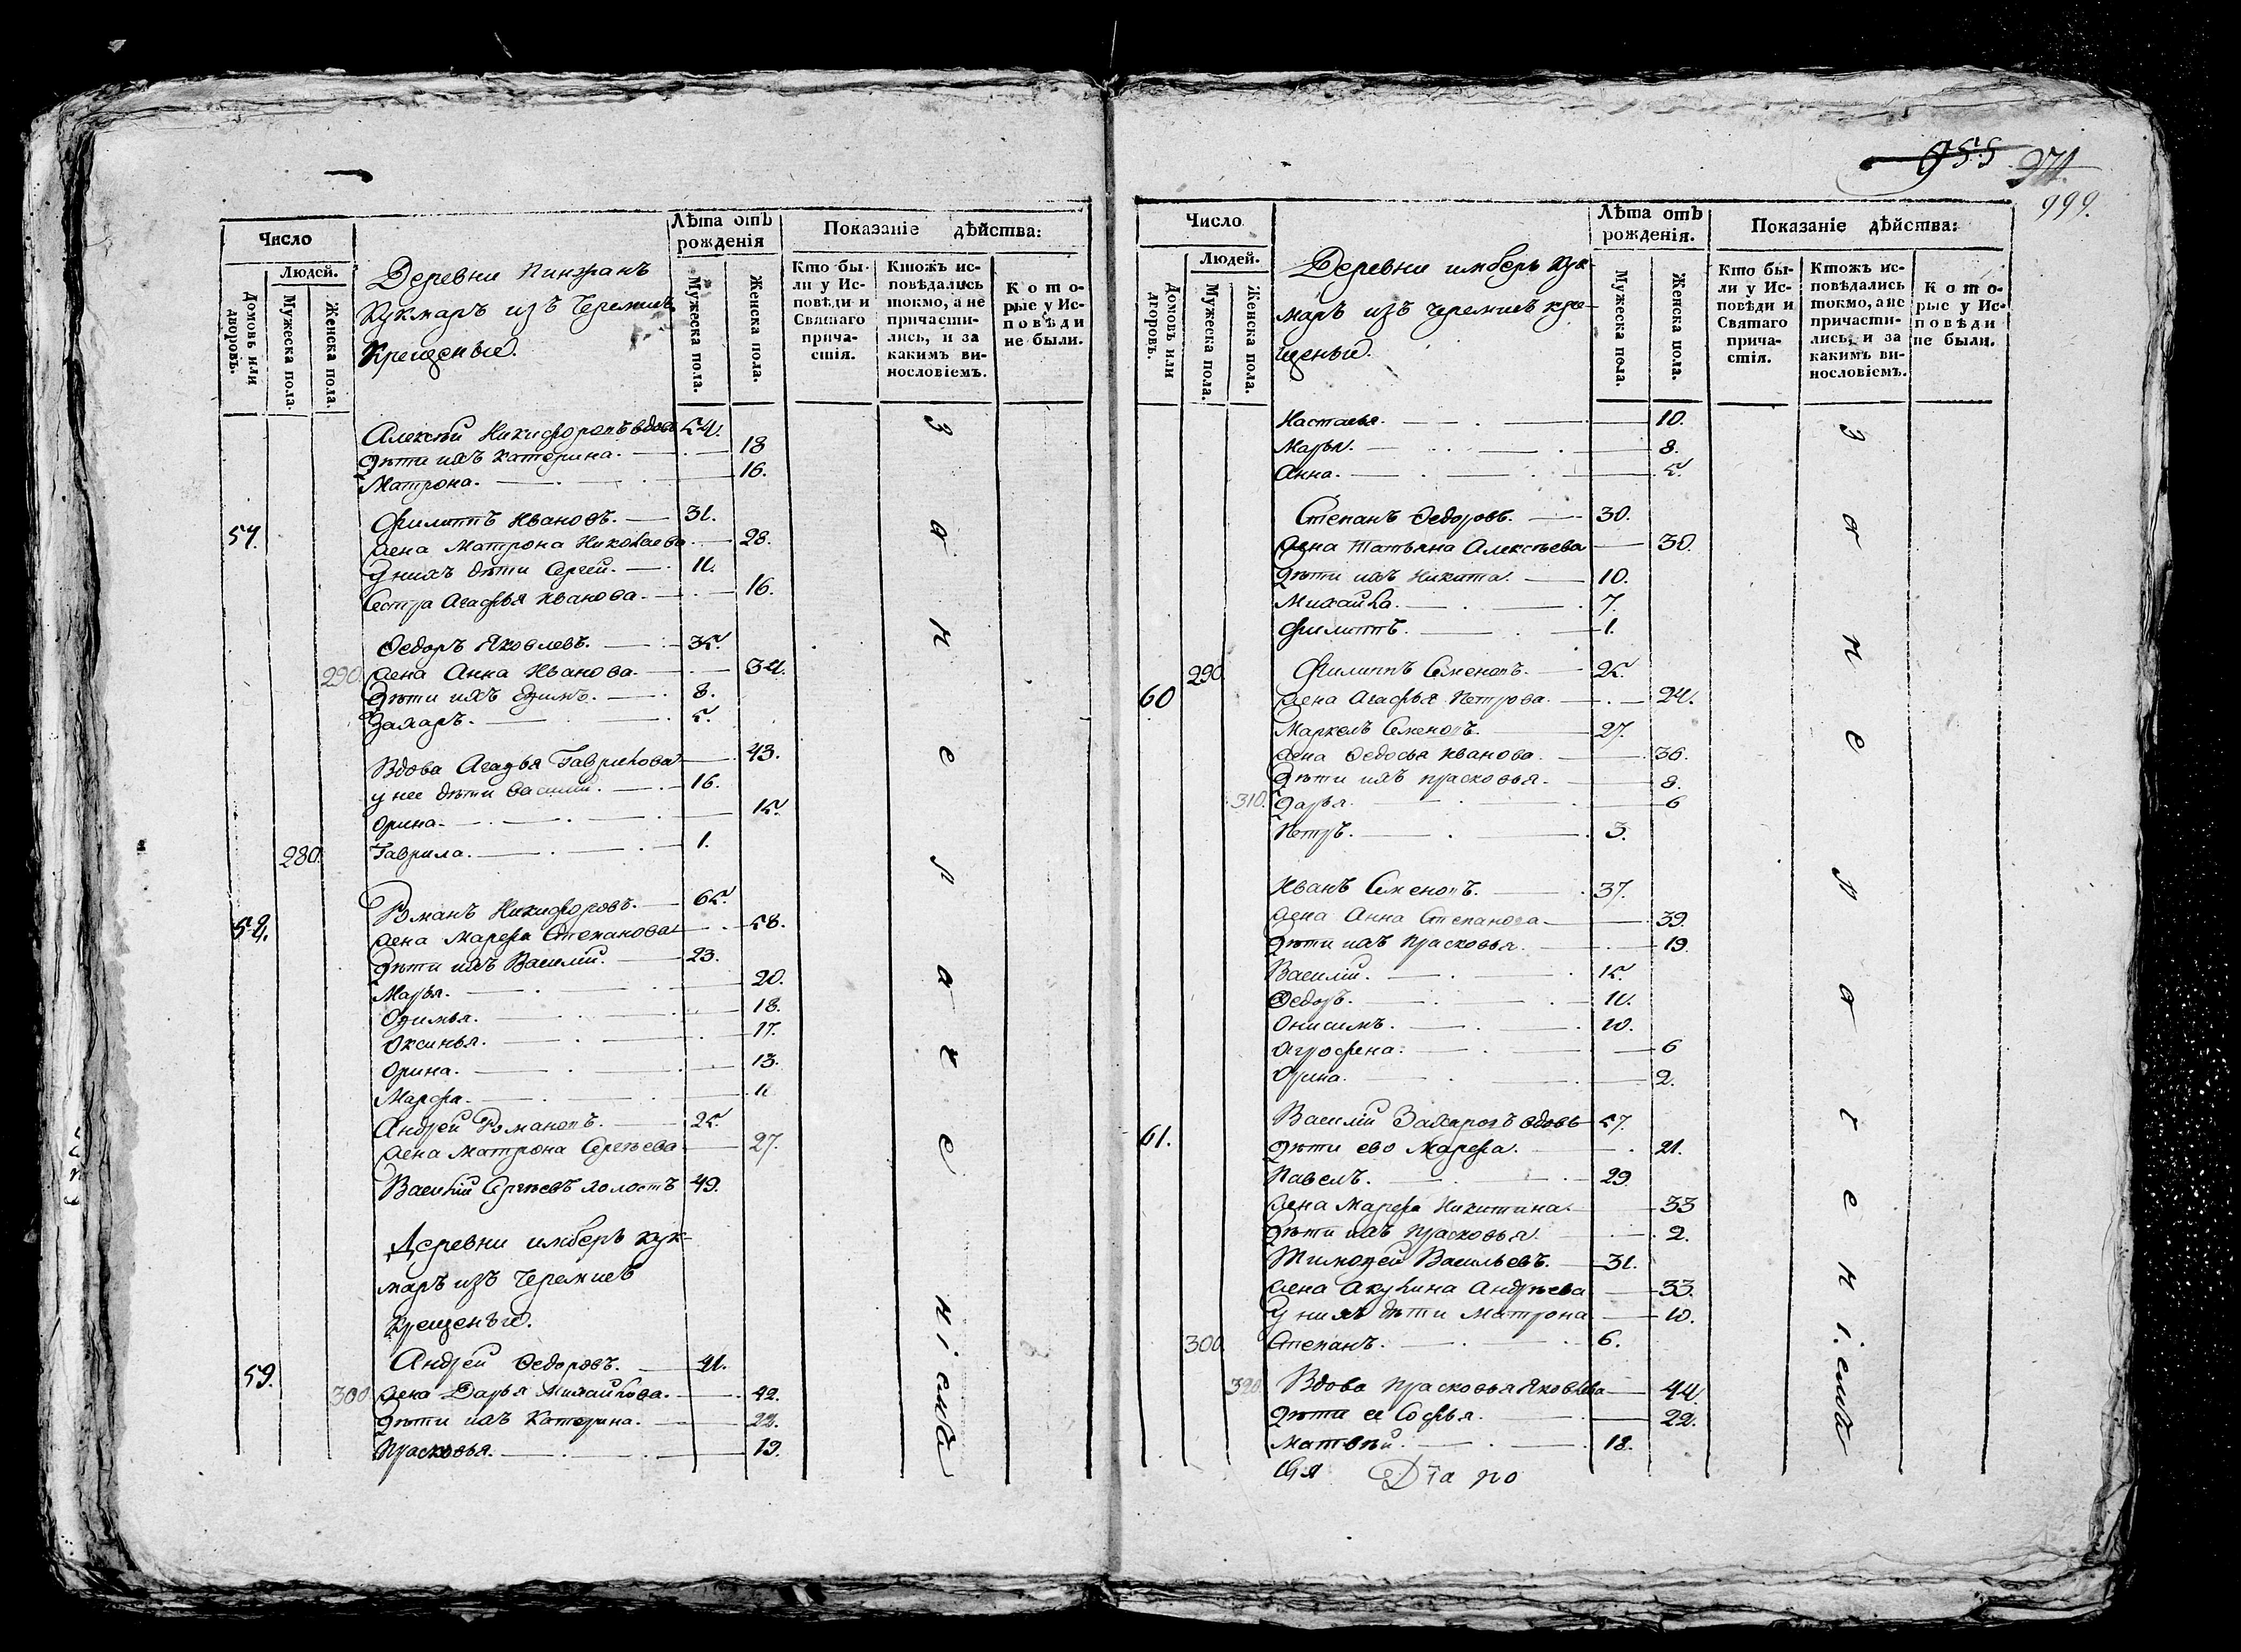 Число
Людей.
Домовъ или дворовъ.
Мужеска пола.
Женска пола.
Деревни Пинжанъ
Кукмаръ изъ Черемисъ
Крещеные.
Лѣта отъ рожденія
Мужеска пола.
Женска пола.
Показаніе дѣйства:
Кто бы-
ли у Ис-
повѣди и
Святаго
прича-
стія.
Ктожъ ис-
повѣдались
токмо, а не
причасти-
лись, и за
какимъ ви-
нословіемъ.
Кото-
рые у Ис-
повѣди
не были.
Алексѣй Никифоровъ вдовъ 54.
Дѣти ихъ Катерина. 18
Матрона. 16.
Филиппъ Ивановъ. 31.
57. жена Матрона Николаева 28.
У нихъ дѣти Сергей. 11.
Сестра Агафья Иванова. 16.
Федоръ Яковлевъ. 35.
290. жена Анна Иванова. 34.
Дѣти ихъ Ефимъ. 8.
Захаръ. 5.
Вдова Агафья Гаврилова 43.
у нее дѣти Василій. 16.
Орина. 15.
280. Гаврила. 1.
Романъ Никифоровъ. 65.
58. жена Марфа Степанова 58.
Дѣти ихъ Василій. 23.
Марья. 20.
Офимья. 18.
Оксинья. 17.
Орина. 13.
Марфа. 11
Андрей Романовъ. 25.
жена Матрона Сергѣева 27.
Василій Сергѣевъ холостъ 49.
Деревни имберь кук-
маръ изъ Черемисъ
Крещеные.
Андрей Федоровъ. 41.
59. 300. жена Дарья Михайлова. 42.
Дѣти ихъ Катерина. 22.
Прасковья. 19.
За не ра че ніемъ
955 974
999.
Число
Людей.
Домовъ или дворовъ.
Мужеска пола.
Женска пола.
Деревни имберь кук-
маръ изъ черемисъ кре-
щеные.
Лѣта отъ рожденія.
Мужеска пола.
Женска пола.
Показаніе дѣйства:
Кто бы-
ли у Ис-
повѣди и
Святаго
прича-
стія.
Ктожъ ис-
повѣдались
токмо, а не
причасти-
лись, и за
какимъ ви-
нословіемъ.
Кото-
рые у Ис-
повѣди
не были.
Настасья. 10.
Марья. 8.
Анна. 5.
Степанъ Федоровъ. 30.
жена Татьяна Алексѣева 30.
Дѣти ихъ Никита. 10.
Михайла. 7.
Филиппъ. 1.
290. Филиппъ Семеновъ. 25.
60 жена Агафья Петрова. 24.
Маркелъ Семеновъ. 27.
жена Федосья Иванова. 36.
Дѣти ихъ Прасковья. 8.
310. Дарья. 6
Петръ. 3.
Иванъ Семеновъ. 37.
жена Анна Степанова 39.
Дѣти ихъ Прасковья. 19.
Василій. 15.
Федоръ. 11.
Онисимъ. 10.
Агрофена. 6
Орина. 2.
Василій Захаровъ вдовъ 57.
61. Дѣти ево Марфа. 21.
Павелъ. 29
жена Марфа Никитина. 33
Дѣти ихъ Прасковья. 2.
Тимофей Васильевъ. 31.
жена Акулина Андрѣева 33.
У нихъ дѣти Матрона 10.
300. Степанъ. 6.
320. Вдова Прасковья Яковлева 44.
Дѣти ее Софья. 22.
Матвѣй. 18.
Діа ко
За не ра че ніемъ